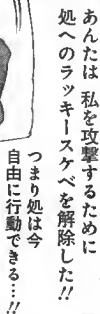 あんたは 私を攻撃するために
処へのラッキースケベを解除した!!
つまり処は今
自由に行動できる…!!